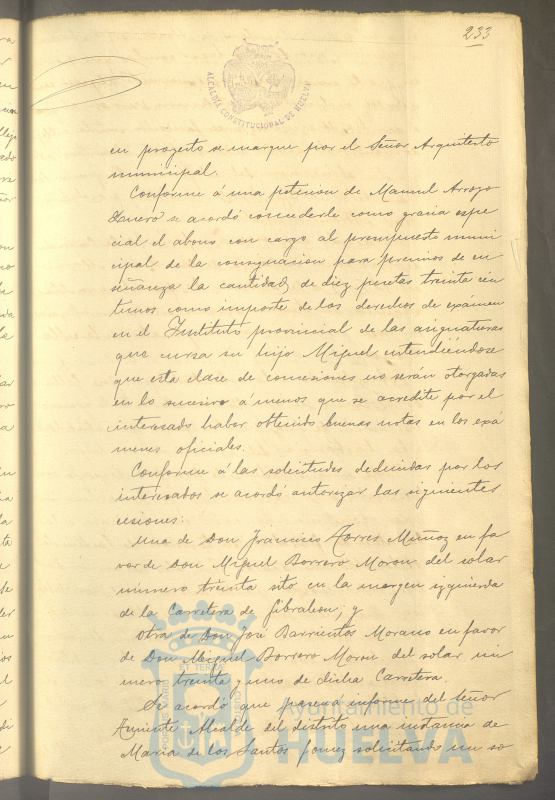 233
ALCALDIA CONSTITUCIONAL DE HUELVA
en proyecto se marque por el Señor Arquitecto
municipal.
Conforme á una peticion de Manuel Arroyo
se acordó concederle como gracia espe
cial el abono con cargo al presupuesto muni
cipal de la consignacion para premios de en
señanza la cantidad de diez pesetas treinta cén
timos como importe de los derechos de exámen
en el Instituto provincial de las asignaturas
que cursa su hijo Miguel entendiéndose
que esta clase de concesiones no serán otorgadas
en lo sucesivo á menos que se acredite por el
interesado haber obtenido buenas notas en los exá
menes oficiales.
Conforme á las solicitudes deducidas por los
interesados se acordó autorizar las siguientes
cesiones:
Una de Don Francisco Torres Muñoz en fa
vor de Don Miguel Borrero Moron del solar
número treinta sito en la margen izquierda
de la Carretera de Gibraleon; y
otra de Don José Barrientos Morano en favor
de Don Miguel Borrero Moron del solar nú
mero treinta y uno de dicha Carretera.
Se acordó que pasen á informe del señor
Teniente Alcalde del distrito una instancia de
Maria de los Santos Gomez solicitando un so
Ayuntamiento de
HUELVA